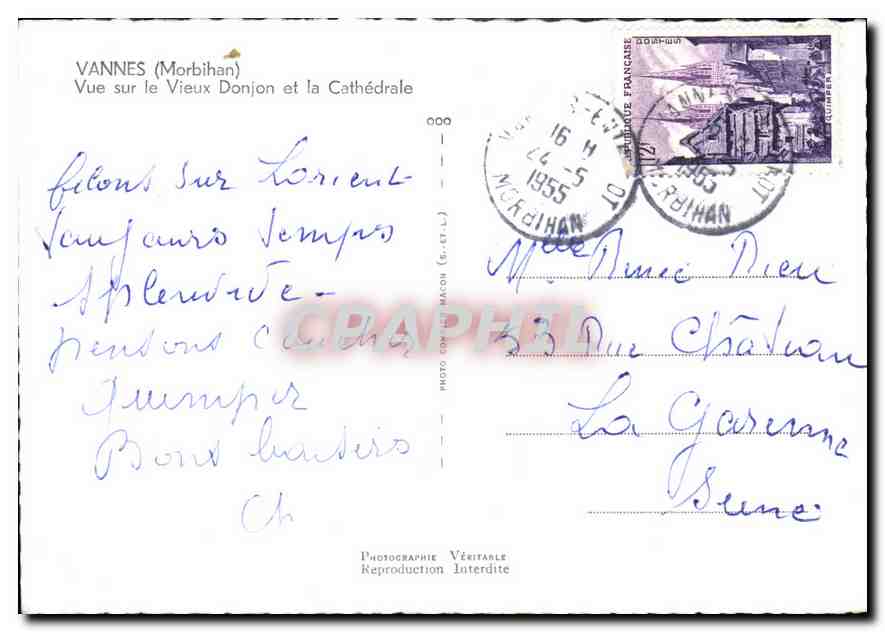 VANNES (Morbihan)
Vue sur le Vieux Donjon et la Cathédrale
filons sur Lorient
Toujours temps
splendide -
pensons coucher
Quimper
Bons baisers
Ch
PHOTO COMBIER MACON (S.-ET-L.)
RÉPUBLIQUE FRANÇAISE
POSTES
QUIMPER
12F
16 H
24-5
1955
MORBIHAN
1955
MORBIHAN
Melle Renée Dieu
33 Rue Château
La Garenne
Seine
CPAPHIL
PHOTOGRAPHIE VÉRITABLE
Reproduction Interdite